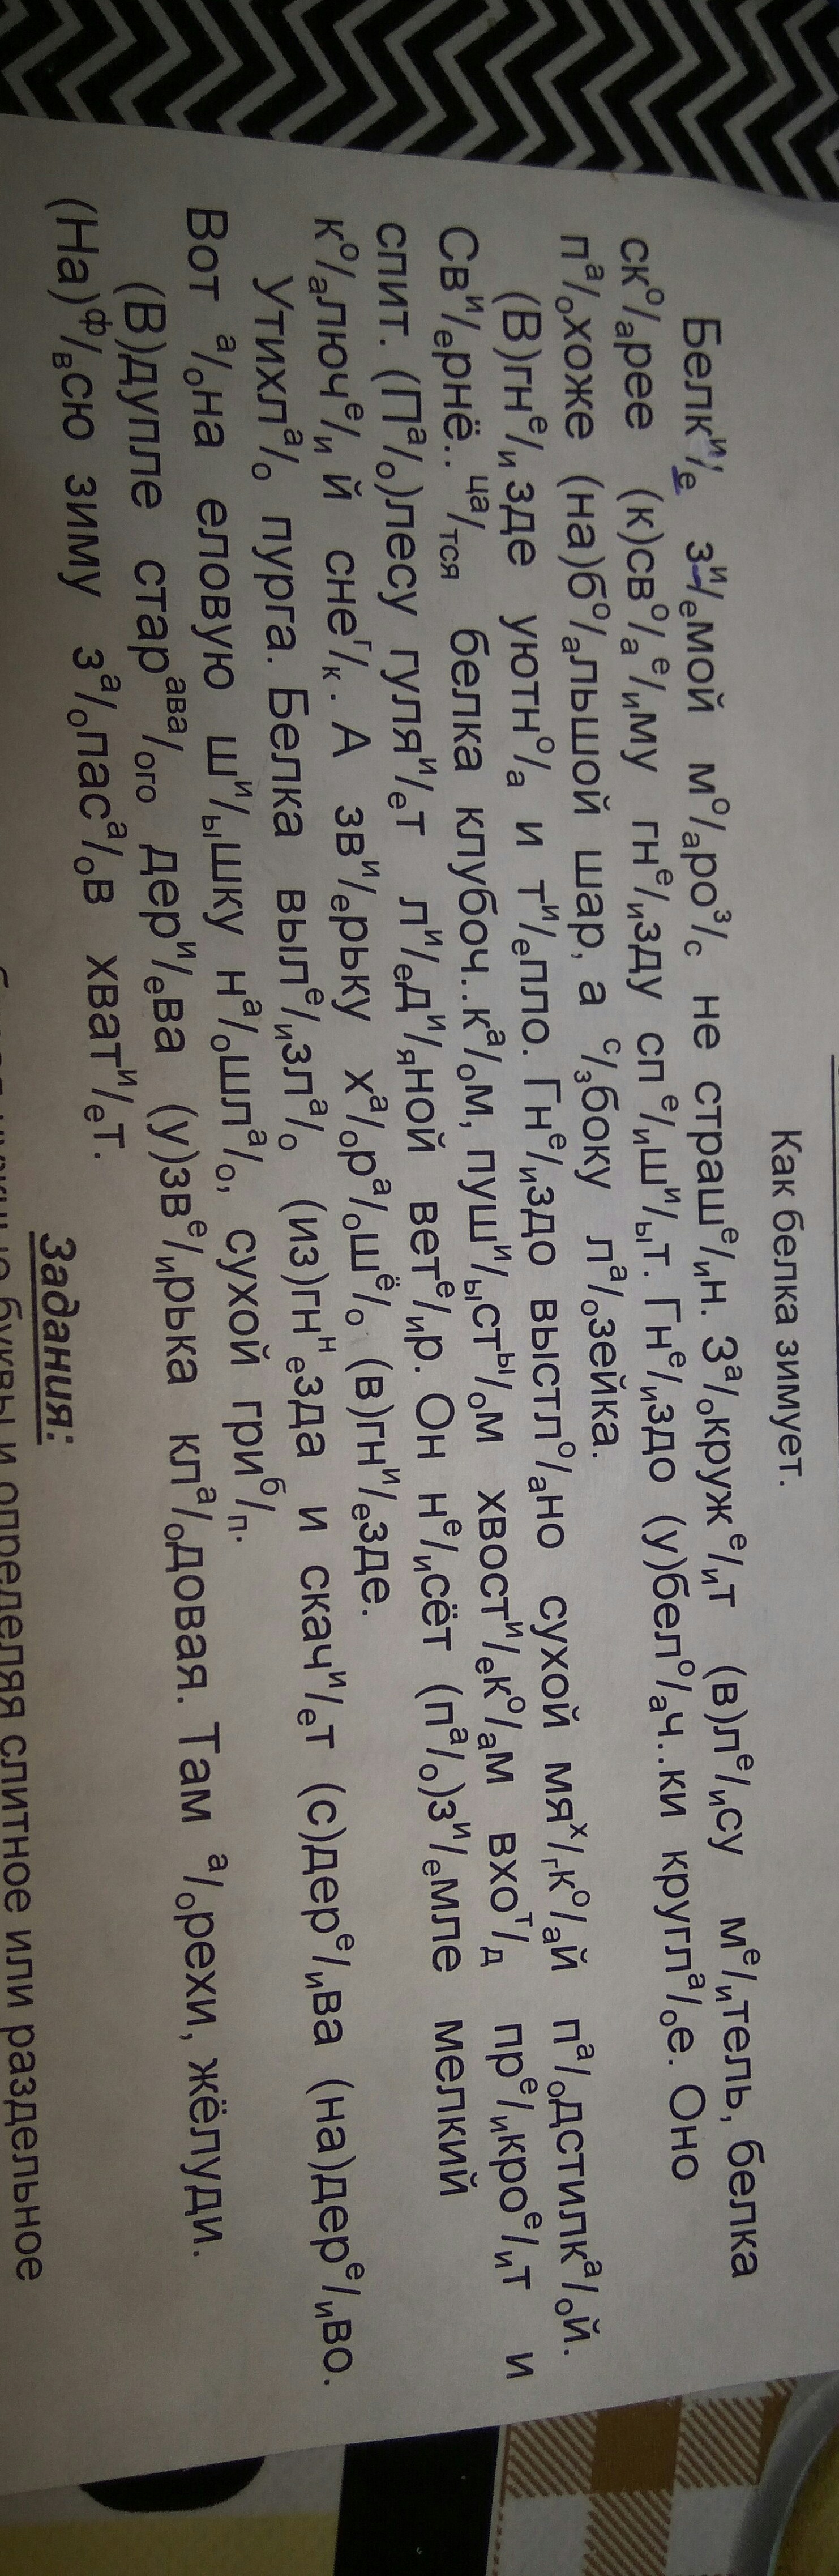 Как белка зимует.
Белки/е зи/емой мо/аро³/с не страше/ин. За/окруже/ит (в)ле/ису ме/итель, белка
ско/арее (к)сво/ае/иму гне/изду спе/иши/ыт. Гне/издо (у)бело/ач..ки кругла/ое. Оно
па/охоже (на)бо/альшой шар, а с/збоку ла/озейка.
(В)гне/изде уютно/а и ти/епло. Гне/издо выстло/ано сухой мях/гко/ай па/одстилка/ой.
Сви/ернё.. ца/тся белка клубоч..ка/ом, пуши/ысты/ом хвости/еко/ам вхот/д пре/икрое/ит и
спит. (Па/о)лесу гуляи/ет ли/еди/яной вете/ир. Он не/исёт (па/о)зи/емле мелкий
ко/алюче/ий снег/к. А зви/ерьку ха/ора/ошё/о (в)гни/езде.
Утихла/о пурга. Белка выле/изла/о (из)гнн езда и скачи/ет (с)дере/ива (на)дере/иво.
Вот а/она еловую ши/ышку на/ошла/о, сухой гриб/п.
(В)дупле старава/ого дери/ева (у)зве/ирька кла/одовая. Там а/орехи, жёлуди.
(На)ф/всю зиму за/опаса/ов хвати/ет.
Задания:
буквы и определяя слитное или раздельное